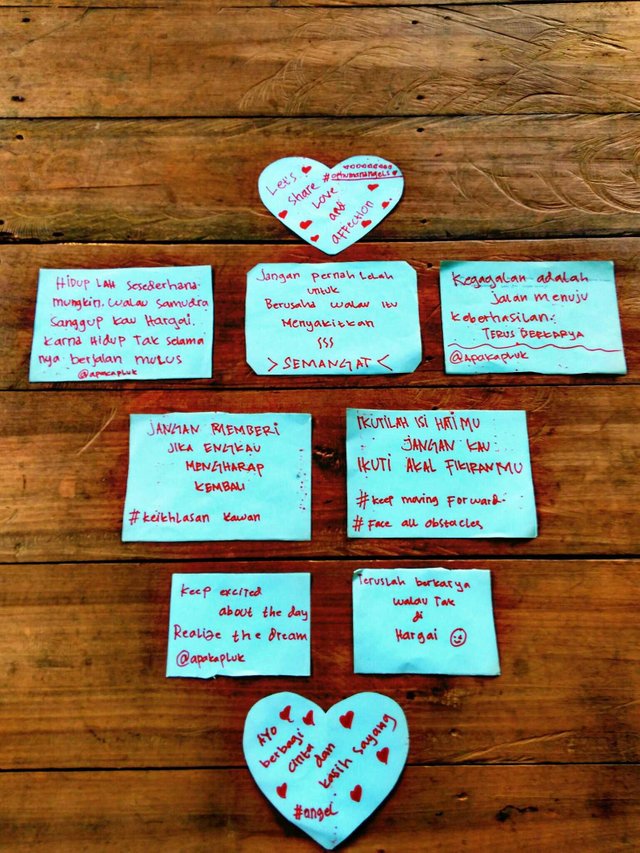 Let's
share
Love
and
affection
#ofhumanangels
Hidup lah sesederhana
mungkin. walau samudra
sanggup kau Hargai.
karna Hidup Tak selama
nya berjalan mulus
@apakapluk
Jangan pernah Lelah
untuk
Berusaha walau itu
Menyakitkan
SSS
>SEMANGAT<
Kegagalan adalah
jalan menuju
keberhasilan.
TERUS BERKARYA
@apakapluk
JANGAN MEMBERI
JIKA ENGKAU
MENGHARAP
KEMBALI
#keikhlasan kawan
IKUTILAH ISI HATIMU
JANGAN KAU
IKUTI AKAL FIKIRANMU
#keep moving Forward.
#Face all obstacles
Keep excited
about the day
Realize the dream
@apakapluk
Teruslah berkarya
walau Tak
di
Hargai
AYO
berbagi
cinta
dan
kasih sayang
#angel